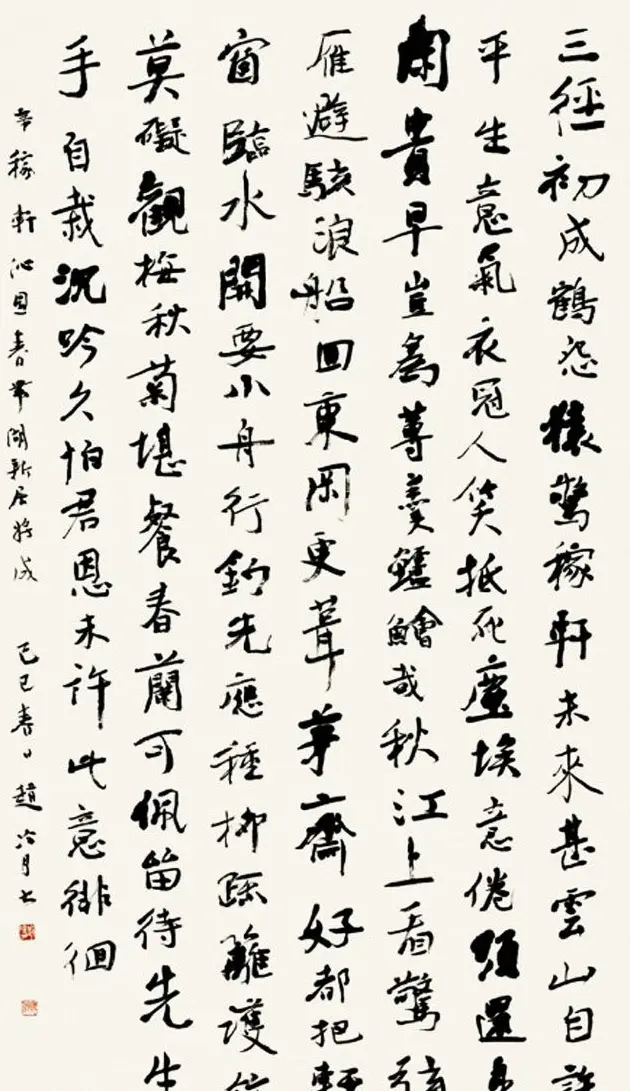 三徑初成鶴怨猿驚稼軒未來甚雲山自許
平生意氣衣冠人笑抵死塵埃意倦須還
閑貴早豈為蓴羹鱸鱠哉秋江上看驚弦
雁避駭浪船回東岡更葺茅齋好都把軒
窗臨水開要小舟行釣先應種柳疏籬護
莫礙觀梅秋菊堪餐春蘭可佩留待先生
手自栽沉吟久怕君恩未許此意徘徊
辛稼軒沁園春帶湖新居將成 己巳春日趙冷月書